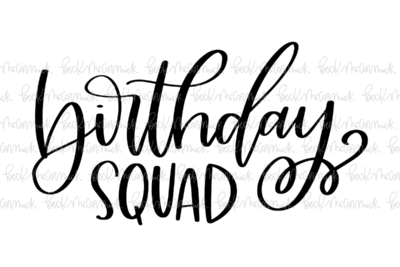 birthday
SQUAD